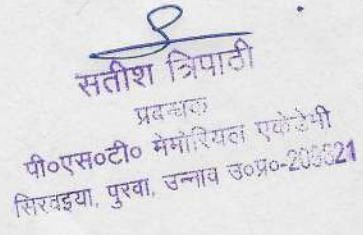 सतीश त्रिपाठी
प्रबन्धक
पी०एस०टी० मेमोरियल एकेडेमी
सिरवइया, पुरवा, उन्नाव उ०प्र०-209821